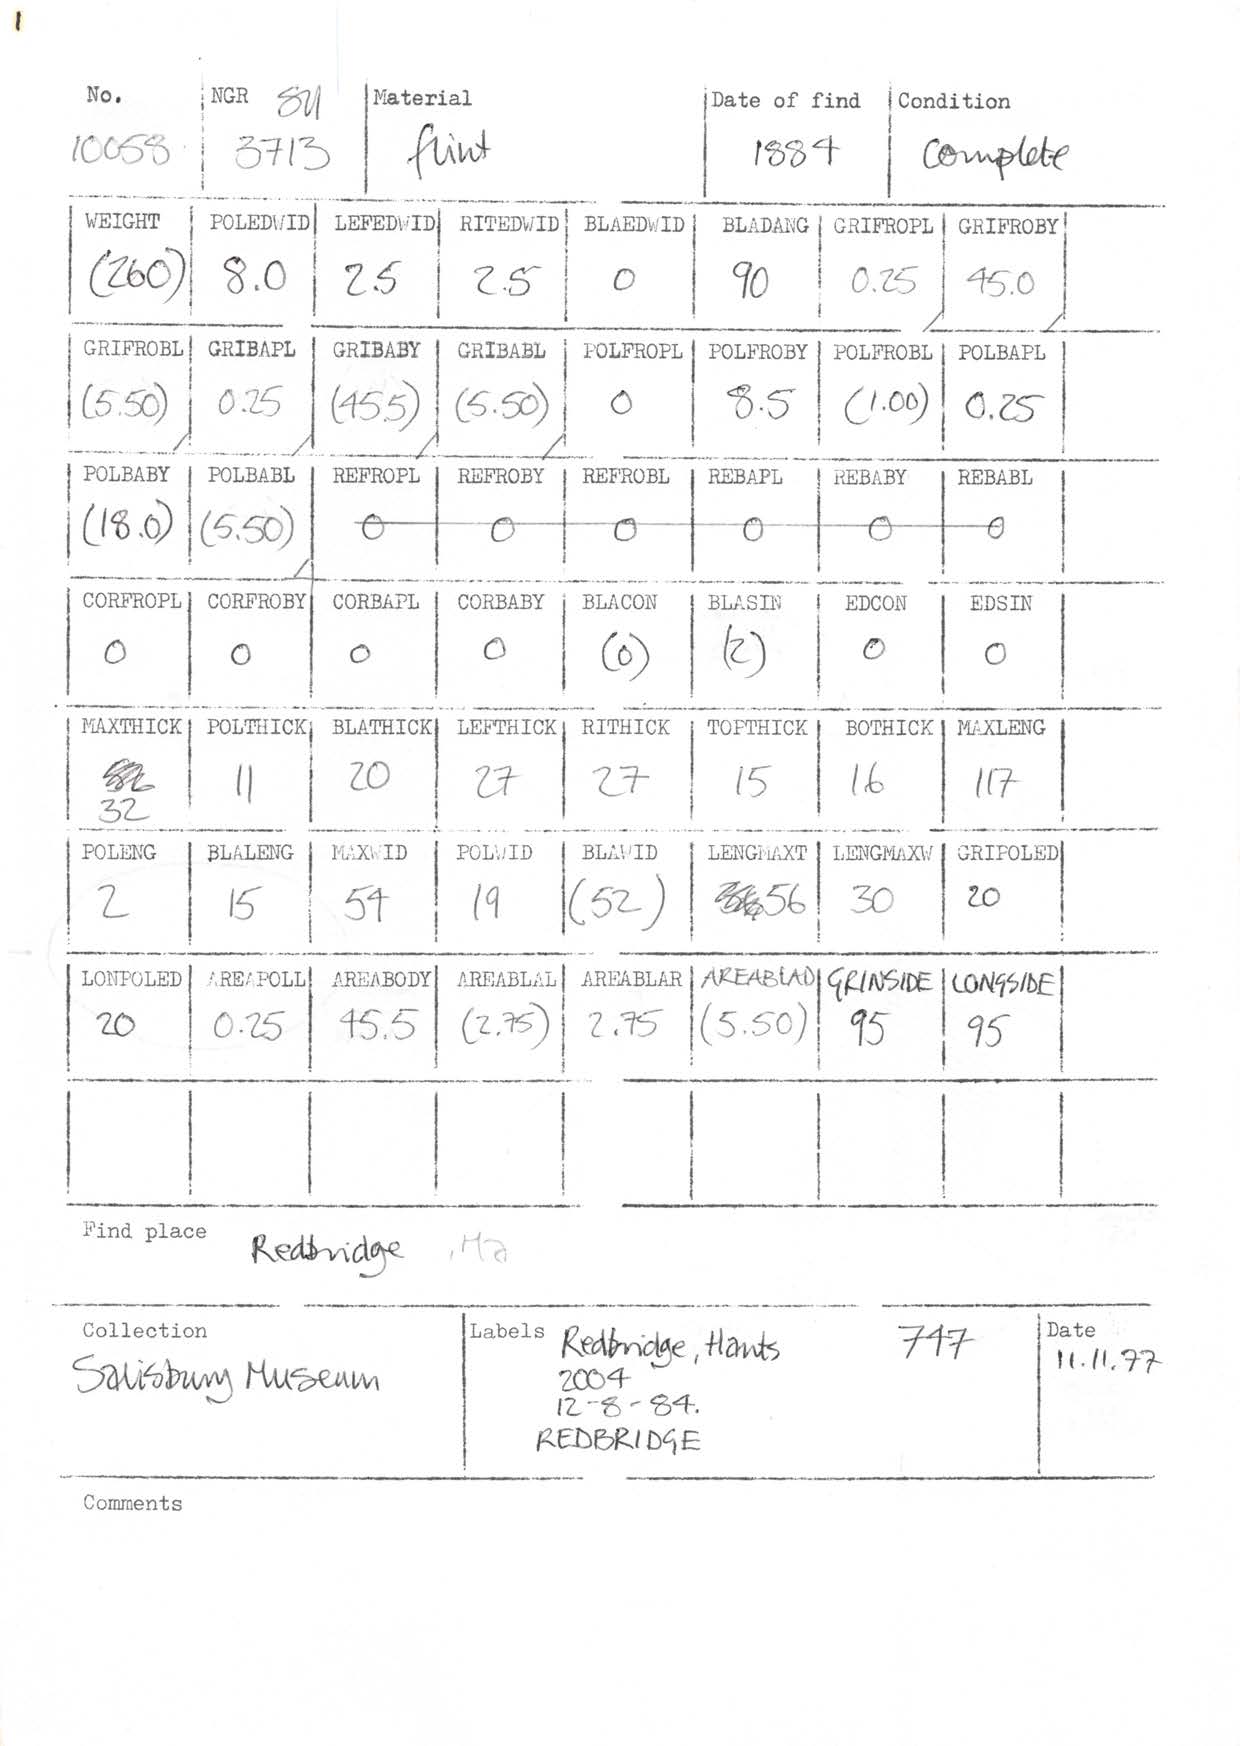 1
No. NGR SU Material Date of find Condition
10058 3713 flint 1884 complete
WEIGHT POLEDWID LEFEDWID RITEDWID BLAEDWID BLADANG GRIFROPL GRIFROBY
(260) 8.0 2.5 2.5 0 90 0.25 45.0
GRIFROBL GRIBAPL GRIBABY GRIBABL POLFROPL POLFROBY POLFROBL POLBAPL
(5.50) 0.25 (45.5) (5.50) 0 8.5 (1.00) 0.25
POLBABY POLBABL REFROPL REFROBY REFROBL REBAPL REBABY REBABL
(18.0) (5.50) 0 0 0 0 0 0
CORFROPL CORFROBY CORBAPL CORBABY BLACON BLASIN EDCON EDSIN
0 0 0 0 (0) (2) 0 0
MAXTHICK POLTHICK BLATHICK LEFTHICK RITHICK TOPTHICK BOTHICK MAXLENG
32 11 20 27 27 15 16 117
POLENG BLALENG MAXWID POLWID BLAWID LENGMAXT LENGMAXW GRIPOLED
2 15 54 19 (52) 56 30 20
LONPOLED AREAPOLL AREABODY AREABLAL AREABLAR AREABLAD GRINSIDE LONGSIDE
20 0.25 45.5 (2.75) 2.75 (5.50) 95 95
Find place Redbridge , Ha
Collection Labels Redbridge, Hants 747 Date
Salisbury Museum 2004 11.11.77
12-8-84.
REDBRIDGE
Comments